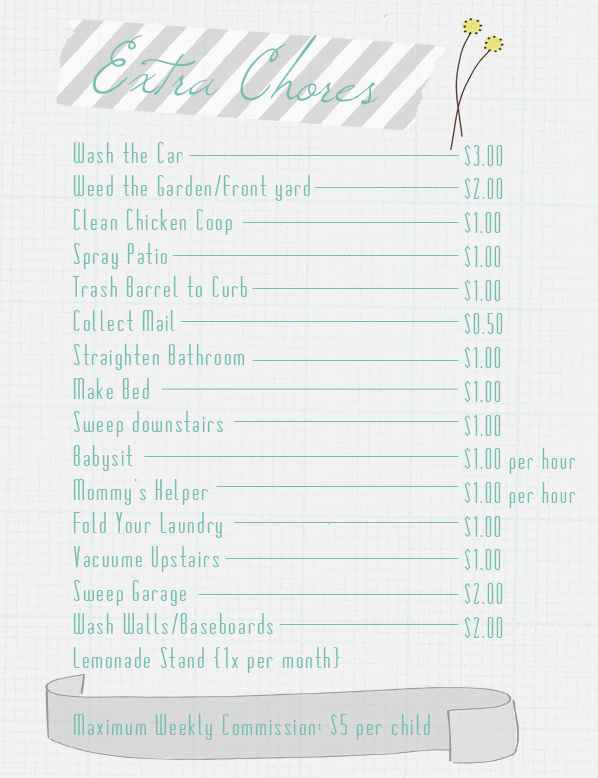 Extra Chores
Wash the Car $3.00
Weed the Garden/Front yard $2.00
Clean Chicken Coop $1.00
Spray Patio $1.00
Trash Barrel to Curb $1.00
Collect Mail $0.50
Straighten Bathroom $1.00
Make Bed $1.00
Sweep downstairs $1.00
Babysit $1.00 per hour
Mommy's Helper $1.00 per hour
Fold Your Laundry $1.00
Vacuume Upstairs $1.00
Sweep Garage $2.00
Wash Walls/Baseboards $2.00
Lemonade Stand {1x per month}
Maximum Weekly Commission: $5 per child